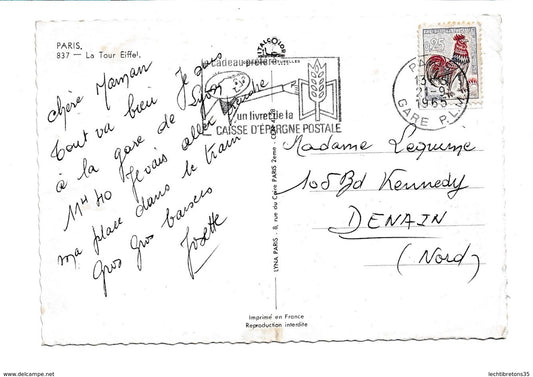 PARIS.
837 — La Tour Eiffel.
chère Maman
Tout va bien Je pars
à la gare de Lyon
11H40 Je vais aller prendre
ma place dans le train
Gros Gros baisers
Josette
Cadeau préféré
un livret de la
CAISSE D'ÉPARGNE POSTALE
LYNA PARIS - 8, rue du Caire PARIS 2eme
0,25
13H45
21-9
1965
GARE P.L.M.
Madame Lequime
105 Bd Kennedy
DENAIN
(Nord)
Imprimé en France
Reproduction interdite
delcampe.net
lechtibretons35